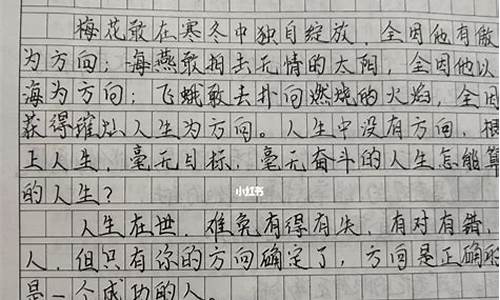 梅花敢在寒冬中独自绽放，全因他有傲
为方向；海燕敢拍击无情的太阳，全因他以
海为方向；飞蛾敢去扑向燃烧的火焰，全因
获得璀灿人生为方向。人生中没有方向，根
上人生，毫无目标，毫无奋斗的人生怎能算
的人生？
小红书
人生在世，难免有得有失，有对有错，
人，但只有你的方向确定了，方向是正确的
是一个成功的人。